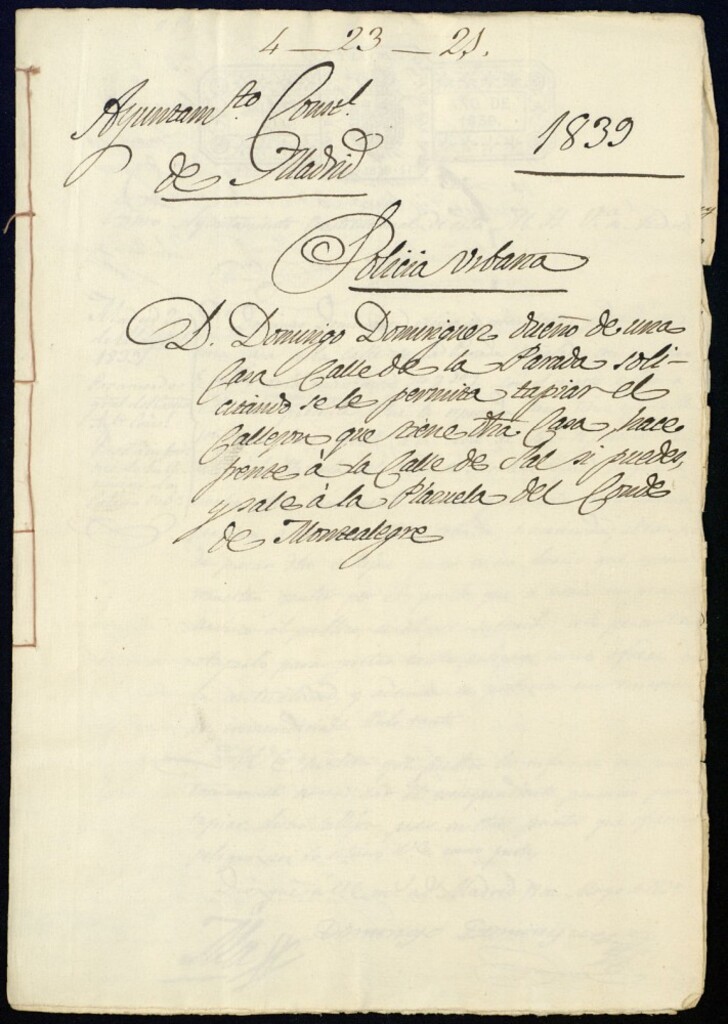 4 — 23 — 21.
Ayuntam.to Const.l
de Madrid
1839
Policia Urbana
D. Domingo Dominguez dueño de una
Casa Calle de la Parada soli-
citando se le permita tapiar el
Callejon que tiene dha Casa, hace
frente à la Calle de Sal si puedes,
y sale à la Plazuela del Conde
de Montealegre